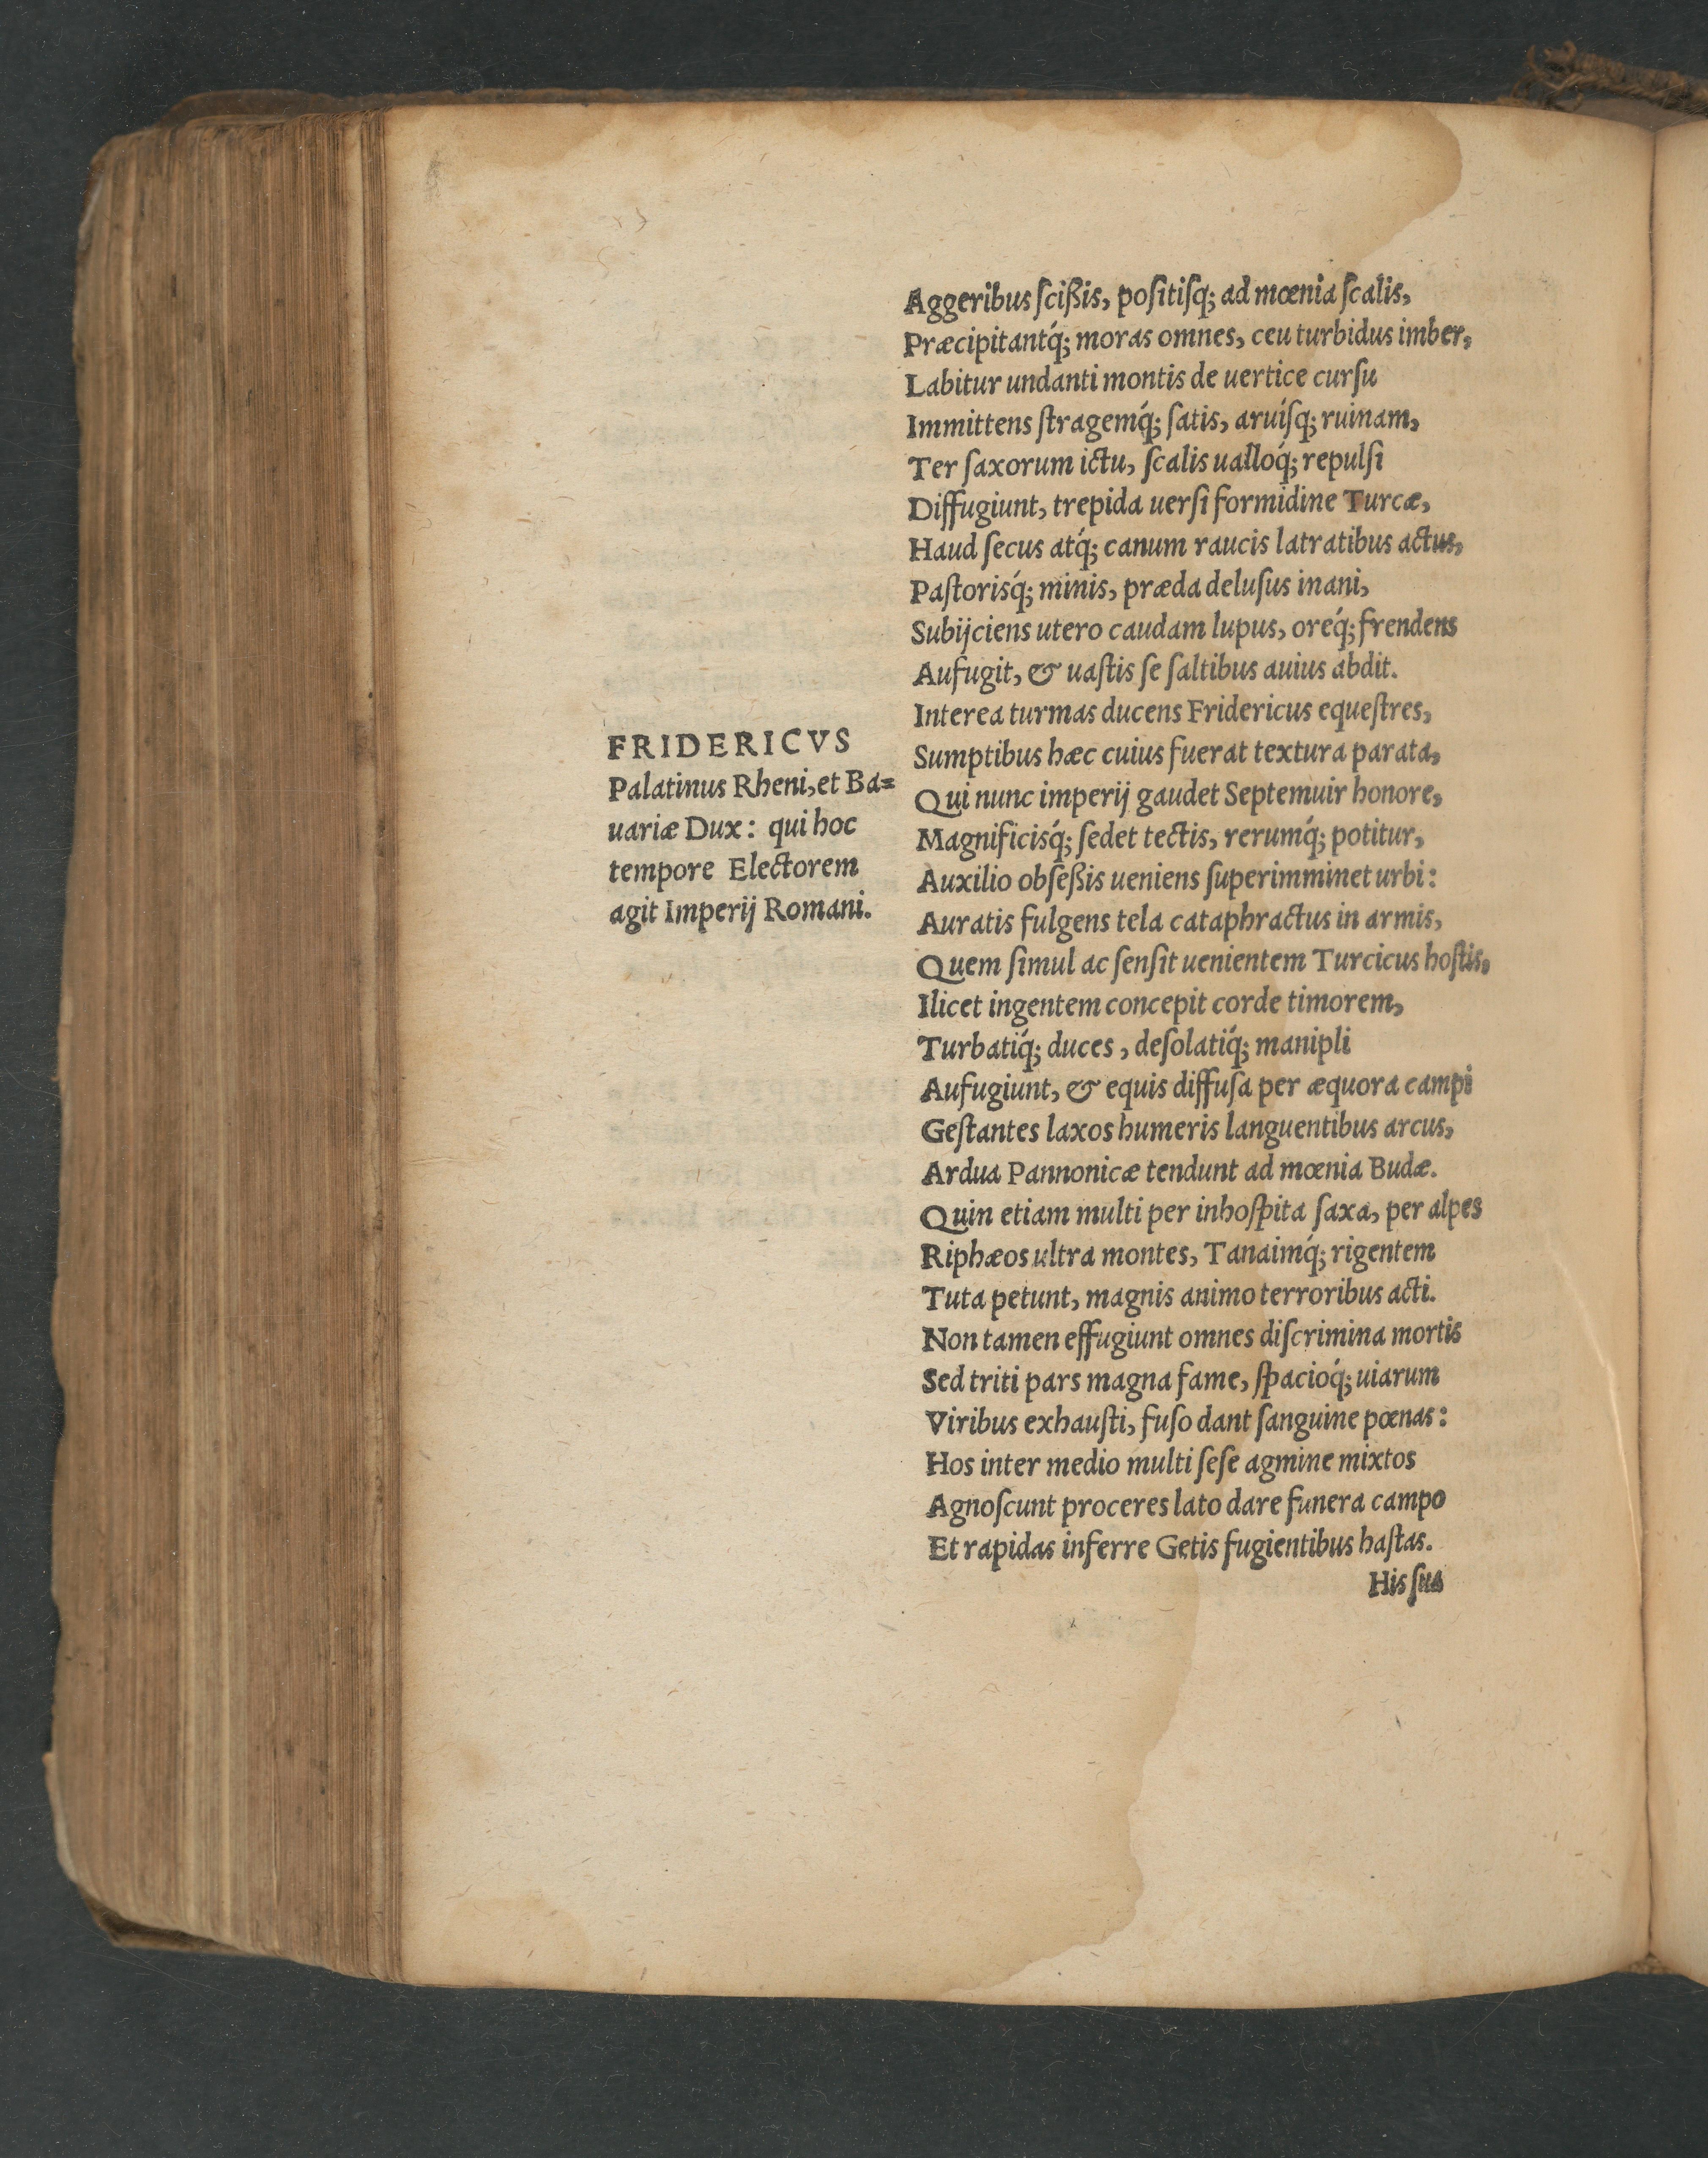 Aggeribus ſcißis, poſitiſq́; ad mœnia ſcalis,
Præcipitantq́; moras omnes, ceu turbidus imber,
Labitur undanti montis de uertice curſu
Immittens ſtragemq́; ſatis, aruiſq́; ruinam,
Ter ſaxorum ictu, ſcalis ualloq́; repulſi
Diffugiunt, trepida uerſi formidine Turcæ,
Haud ſecus atq́; canum raucis latratibus actus,
Paſtorisq́; minis, præda deluſus inani,
Subijciens utero caudam lupus, oreq́; frendens
Aufugit, & uaſtis ſe ſaltibus auius abdit.
Interea turmas ducens Fridericus equeſtres,
Sumptibus hæc cuius fuerat textura parata,
Qui nunc imperij gaudet Septemuir honore,
Magnificisq́; ſedet tectis, rerumq́; potitur,
Auxilio obſeßis ueniens ſuperimminet urbi:
Auratis fulgens tela cataphractus in armis,
Quem ſimul ac ſenſit uenientem Turcicus hoſtis,
Ilicet ingentem concepit corde timorem,
Turbatiq́; duces, deſolatiq́; manipli
Aufugiunt, & equis diffuſa per æquora campi
Geſtantes laxos humeris languentibus arcus,
Ardua Pannonicæ tendunt ad mœnia Budæ.
Quin etiam multi per inhoſpita ſaxa, per alpes
Riphæos ultra montes, Tanaimq́; rigentem
Tuta petunt, magnis animo terroribus acti.
Non tamen effugiunt omnes diſcrimina mortis
Sed triti pars magna fame, ſpacioq́; uiarum
Viribus exhauſti, fuſo dant ſanguine pœnas:
Hos inter medio multi ſeſe agmine mixtos
Agnoſcunt proceres lato dare funera campo
Et rapidas inferre Getis fugientibus haſtas.
His ſua
FRIDERICVS
Palatinus Rheni, et Ba=
uariæ Dux: qui hoc
tempore Electorem
agit Imperij Romani.